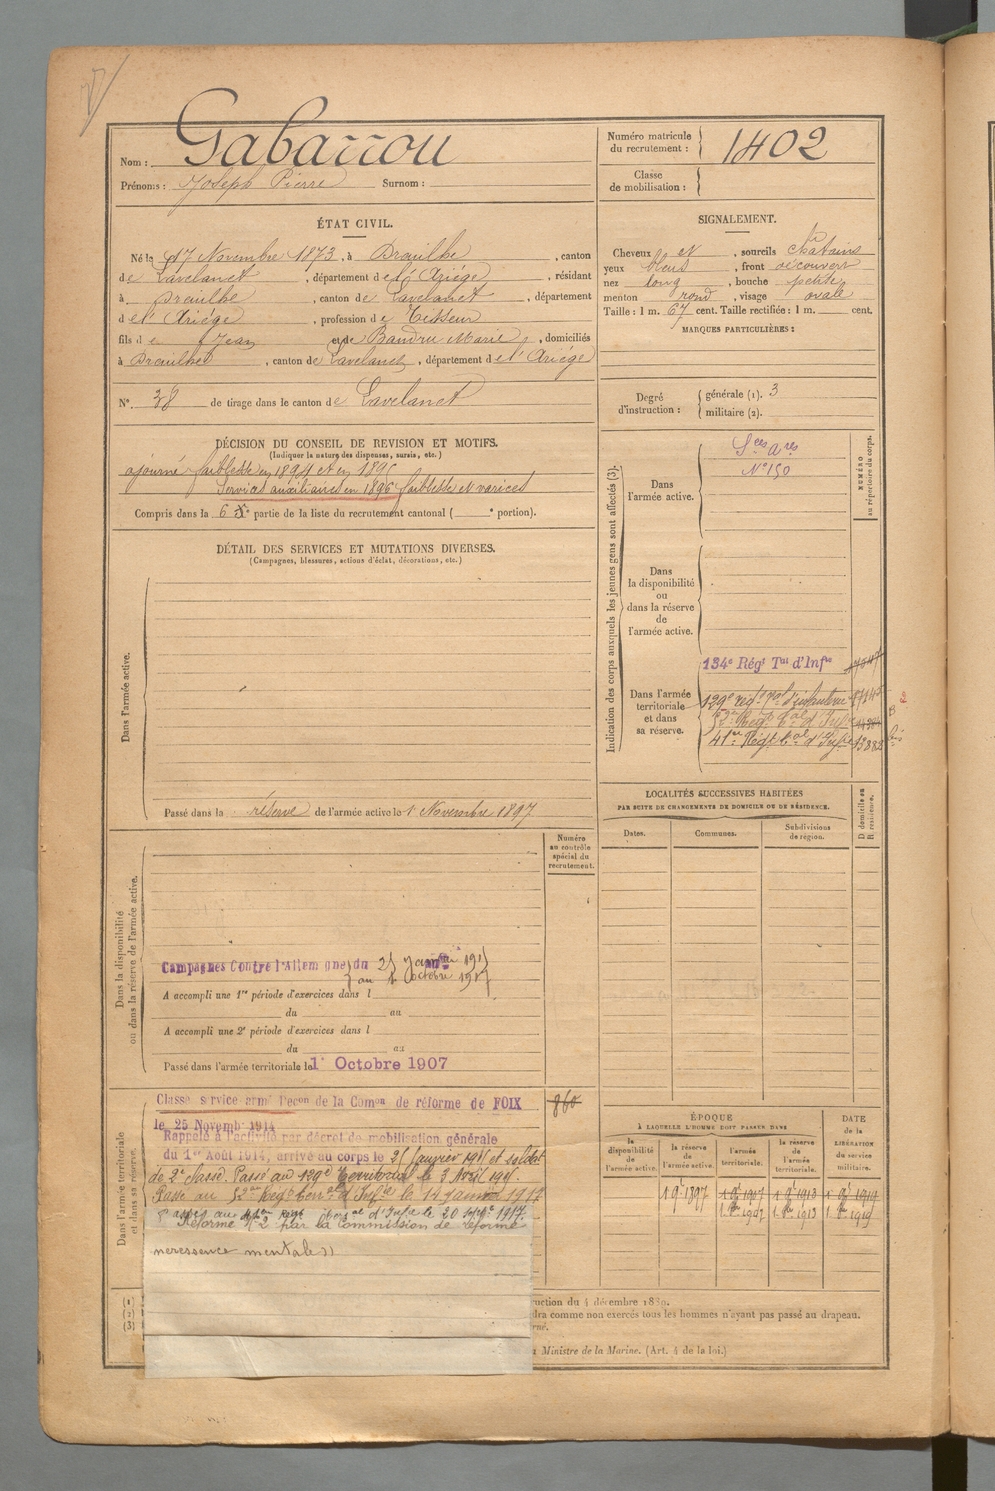 Nom : Gabarrou
Prénoms : Joseph Pierre Surnom :
Numéro matricule du recrutement : 1402
Classe de mobilisation :
ÉTAT CIVIL.
Né le 17 Novembre 1873, à Dreuilhe, canton
de Lavelanet, département de l'Ariège, résidant
à Dreuilhe, canton de Lavelanet, département
de l'Ariège, profession de Tisseur
fils de Jean et de Marie, domiciliés
à Dreuilhe, canton de Lavelanet, département de l'Ariège
N°. 38 de tirage dans le canton de Lavelanet
SIGNALEMENT.
Cheveux et, sourcils châtains
yeux bleus, front découvert
nez long, bouche petite
menton rond, visage ovale
Taille : 1 m. 67 cent. Taille rectifiée : 1 m. cent.
MARQUES PARTICULIÈRES :
Degré d'instruction :
générale (1). 3
militaire (2).
DÉCISION DU CONSEIL DE REVISION ET MOTIFS.
(Indiquer la nature des dispenses, sursis, etc.)
ajourné faiblesse en 1894 et en 1895
Services auxiliaires en 1896 faiblesse et varices
Compris dans la 6e partie de la liste du recrutement cantonal ( e portion).
DÉTAIL DES SERVICES ET MUTATIONS DIVERSES.
(Campagnes, blessures, actions d'éclat, décorations, etc.)
Dans l'armée active.
Passé dans la réserve de l'armée active le 1 Novembre 1897
Indication des corps auxquels les jeunes gens sont affectés (3).
NUMÉRO au répertoire du corps.
Dans l'armée active.
Sces Ares
N° 150
Dans la disponibilité ou dans la réserve de l'armée active.
Dans l'armée territoriale et dans sa réserve.
134e Régt Tal d'Infie
129e régt tal d'infanterie
52e Régt tal d'Infie
41e Régt tal d'Infie
LOCALITÉS SUCCESSIVES HABITÉES
PAR SUITE DE CHANGEMENTS DE DOMICILE OU DE RÉSIDENCE.
Dates.
Communes.
Subdivisions de région.
D. domicile ou R. résidence.
Numéro au contrôle spécial du recrutement.
Dans la disponibilité ou dans la réserve de l'armée active.
Campagnes Contre l'Allemagne du
A accompli une 1re période d'exercices dans l
du au
A accompli une 2e période d'exercices dans l
du au
Passé dans l'armée territoriale le 1r Octobre 1907
Dans l'armée territoriale et dans sa réserve.
Classé service armé Décon de la Comon de réforme de FOIX 860
le 25 Novemb. 1914
Rappelé à l'activité par décret de mobilisation générale
du 1er Août 1914, arrivé au corps le et soldat
de 2e classe. Passé au 129e Territorial le 3 Avril
Passé au 52e Régt d'Infie le 14 janvier 1917
Passé au Régt d'Infie le 20 1917.
Réformé N° 2 par la Commission de réforme
mentale))
ÉPOQUE
À LAQUELLE L'HOMME DOIT PASSER DANS
DATE de la LIBÉRATION du service militaire.
la disponibilité de l'armée active.
la réserve de l'armée active.
l'armée territoriale.
la réserve de l'armée territoriale.
(1)
(2)
(3)
ruction du 4 décembre 1889.
dra comme non exercés tous les hommes n'ayant pas passé au drapeau.
Ministre de la Marine. (Art. 4 de la loi.)